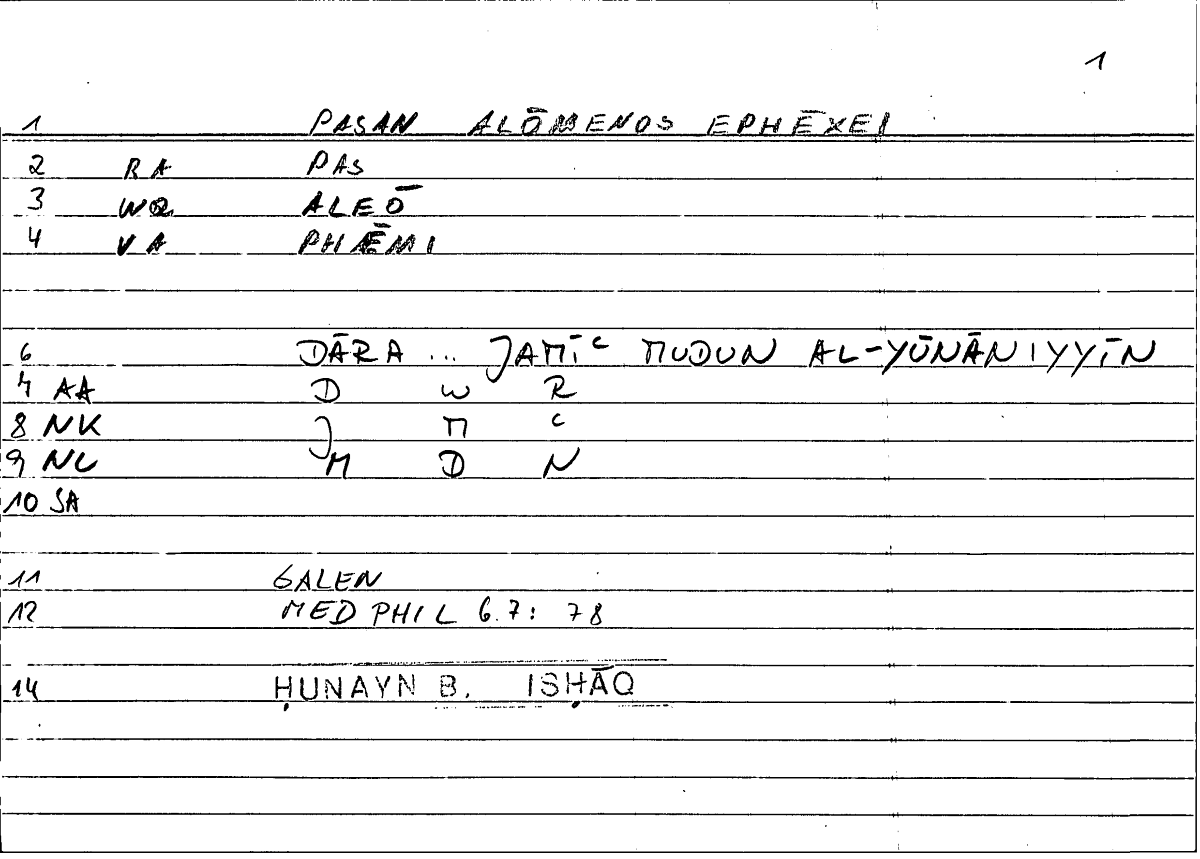 1
1 PASAN ALŌMENOS EPHĒXEI
2 RA PAS
3 WQ ALEŌ
4 VA PHĒMI
6 DĀRA ... JAMĪʿ MUDUN AL-YŪNĀNIYYĪN
7 AA D W R
8 NK J M ʿ
9 NL M D N
10 SA
11 GALEN
12 MED PHIL 6.7: 78
14 ḤUNAYN B. ISḤĀQ